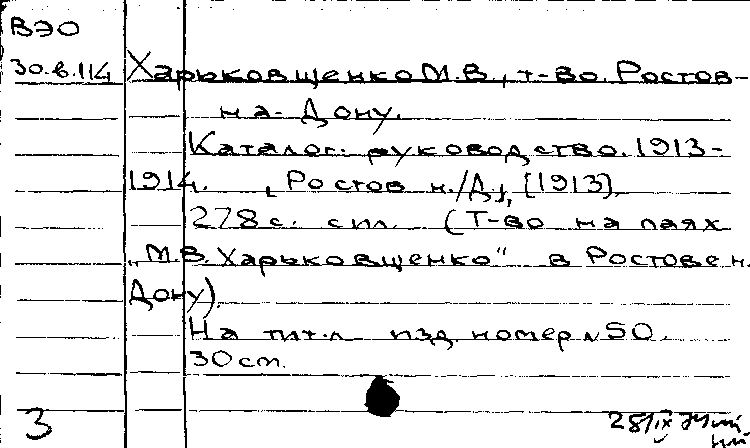 ВЭО
30.в.114 Харьковщенко М.В., т-во. Ростов-
на-Дону.
Каталог-руководство. 1913-
1914. [Ростов н./Д.], [1913].
278 с. с ил. (Т-во на паях
„М.В. Харьковщенко" в Ростове н.
Дону).
На тит. л изд. номер N 50.
30 см.
3 28/IX